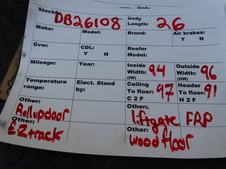 Stock: DB26108 Body Length: 26
Make: Model: Brand: Air brakes: Y N
Gvw: CDL: Y N Reefer Model:
Mileage: Year: Inside Width: 94 Outside Width: 96
Temperature range: Elect. Stand by: Ceiling To floor: 97 C 2 F Header To floor: 91 H 2 F
Other: Rollupdoor Other: liftgate FAP
Other: EZtrack Other: wood floor